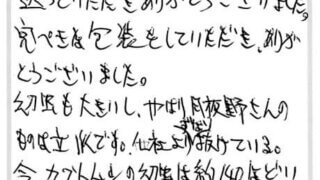 送っていただきありがとうございました。
完ぺきな包装をしていただき、ありが
とうございました。
幼虫も大きいし、やはり月夜野さんの
ものは立派です。他社よりずば抜けている。
今、カブトムシの幼虫は約140ほどい